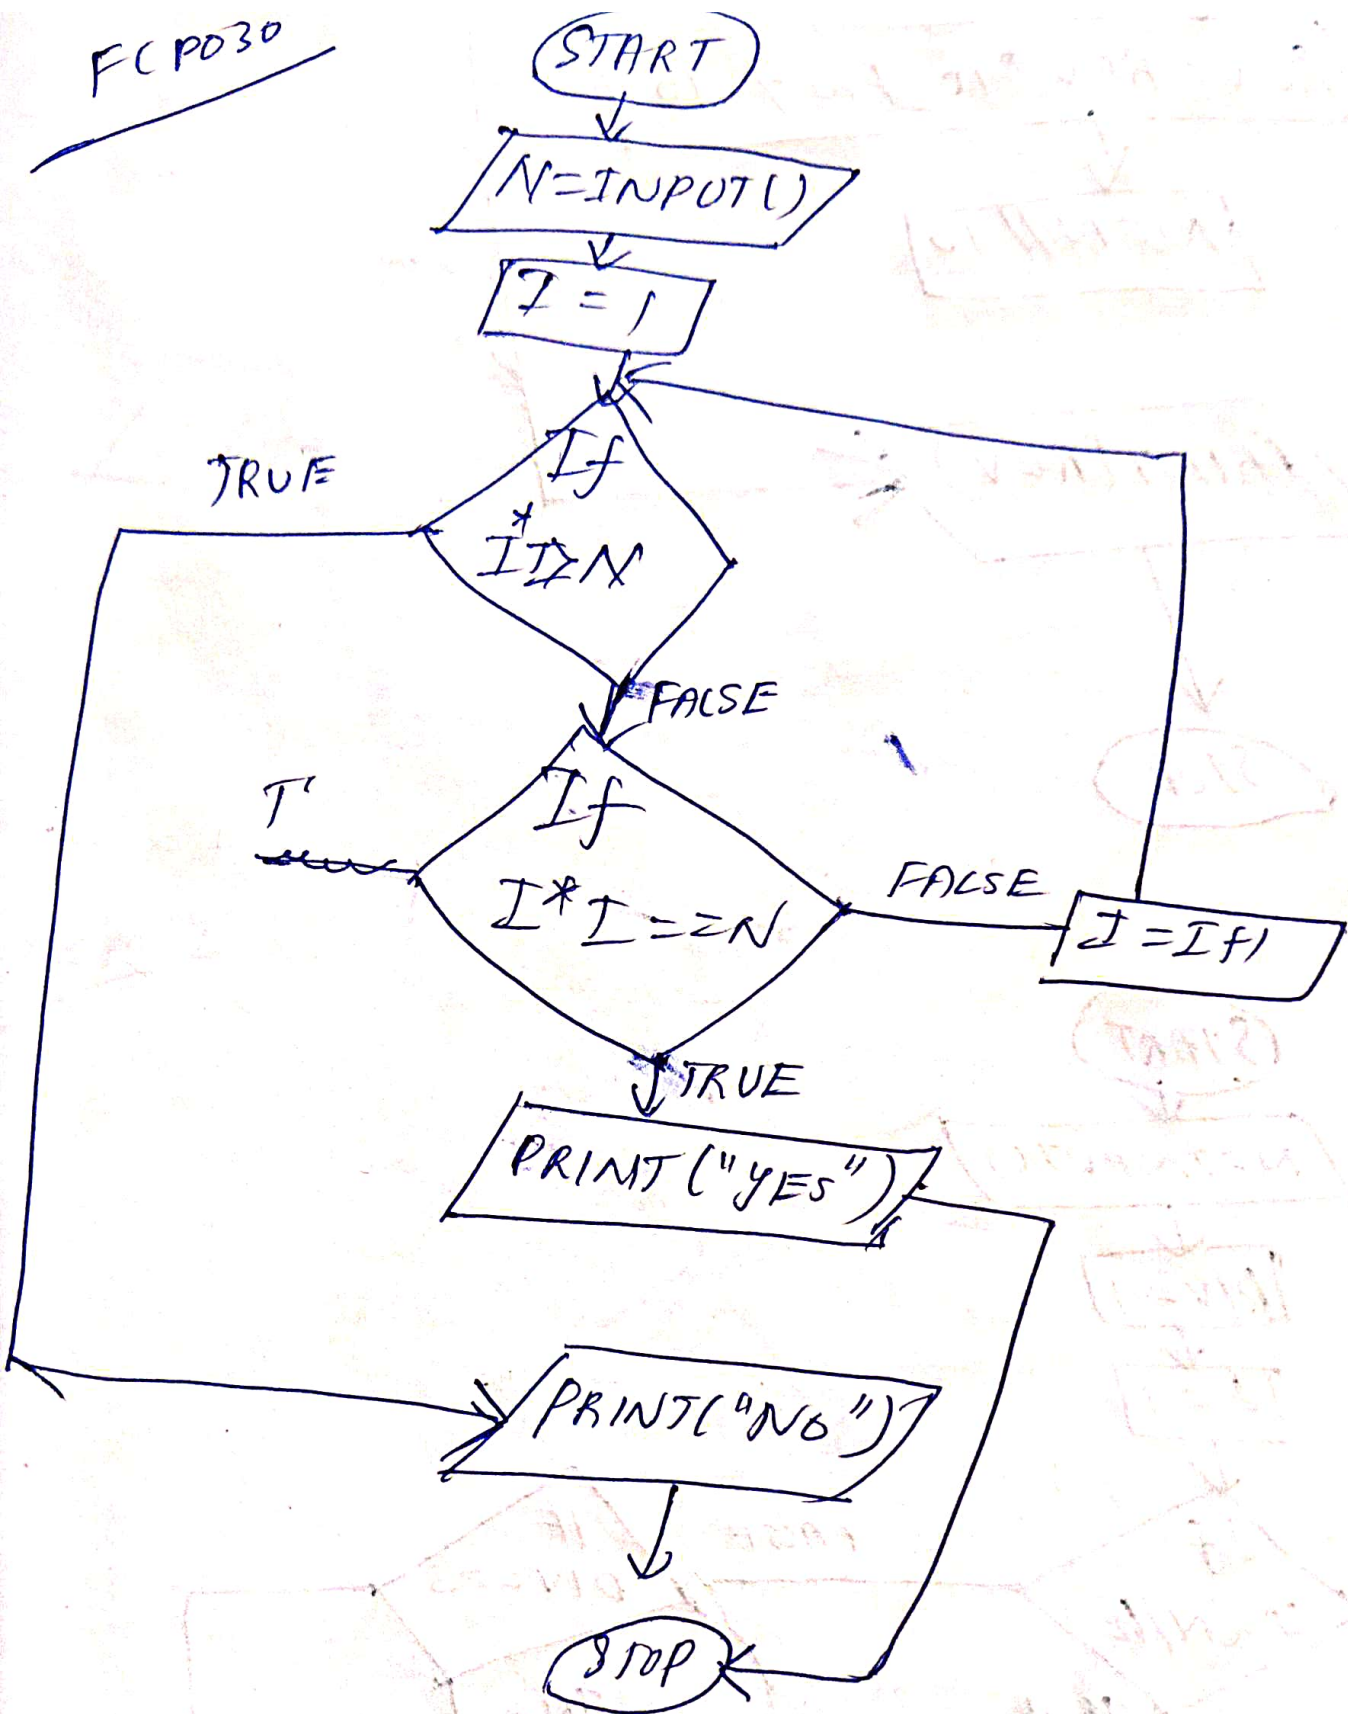 FCP030
START
N=INPUT()
I = 1
If
I*I>N
TRUE
FALSE
If
I*I==N
T
FALSE
I=I+1
TRUE
PRINT("YES")
PRINT("NO")
STOP